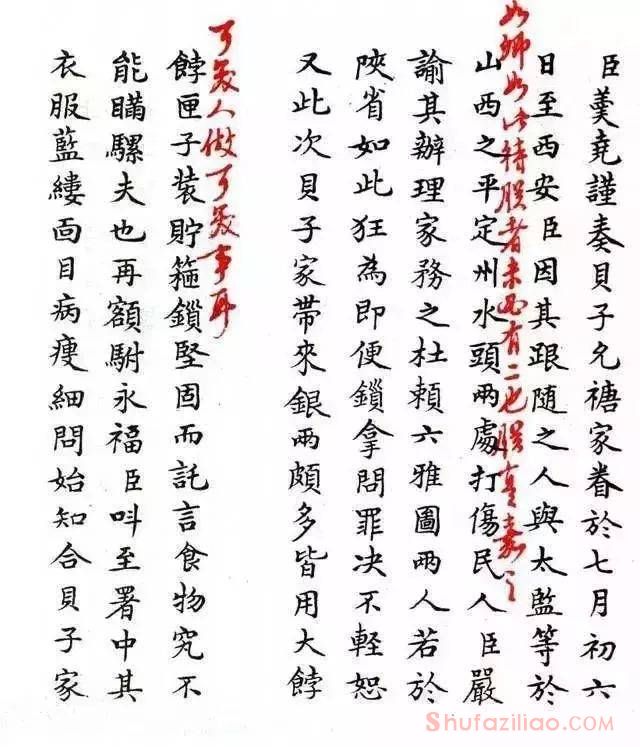 臣羹堯謹奏貝子允禟家眷於七月初六
日至西安臣因其跟隨之人與太監等於
如卿如此待朕者未必有二也朕真嘉之
山西之平定州水頭兩處打傷民人臣嚴
諭其辦理家務之杜賴六雅圖兩人若於
陝省如此狂為即便鎖拿問罪决不輕恕
又此次貝子家帶來銀兩頗多皆用大餑
可笑人做可笑事耳
餑匣子裝貯箍鎖堅固而託言食物究不
能瞞騾夫也再額駙永福臣呌至署中其
衣服藍縷面目病瘦細問始知合貝子家
Shufaziliao.com